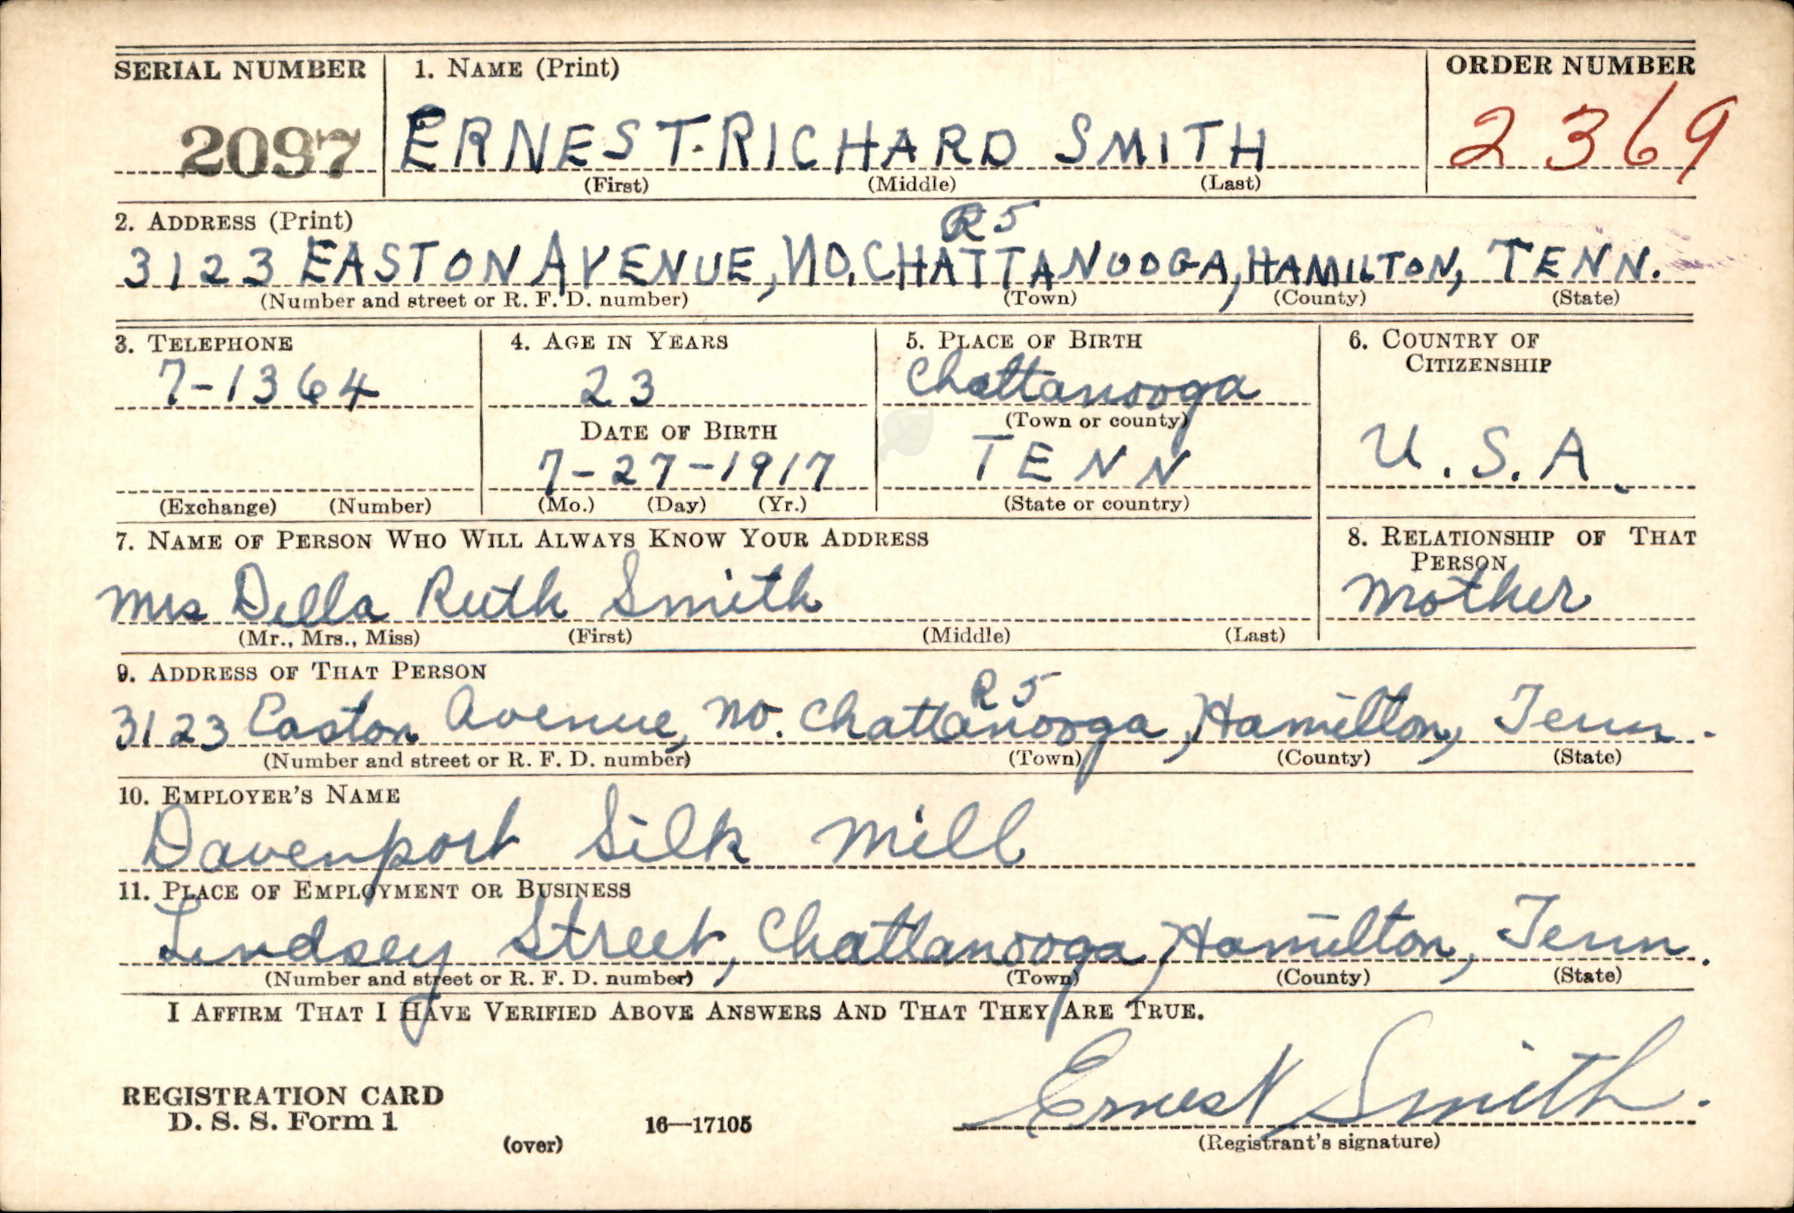 SERIAL NUMBER 1. NAME (Print) ORDER NUMBER
2097 ERNEST RICHARD SMITH 2369
(First) (Middle) (Last)
2. ADDRESS (Print) R5
3123 EASTON AVENUE, NO. CHATTANOOGA, HAMILTON, TENN.
(Number and street or R. F. D. number) (Town) (County) (State)
3. TELEPHONE 4. AGE IN YEARS 5. PLACE OF BIRTH 6. COUNTRY OF
CITIZENSHIP
7-1364 23 Chattanooga
(Town or county)
DATE OF BIRTH
7-27-1917 TENN U.S.A.
(Exchange) (Number) (Mo.) (Day) (Yr.) (State or country)
7. NAME OF PERSON WHO WILL ALWAYS KNOW YOUR ADDRESS 8. RELATIONSHIP OF THAT
PERSON
Mrs Della Ruth Smith Mother
(Mr., Mrs., Miss) (First) (Middle) (Last)
9. ADDRESS OF THAT PERSON R5
3123 Easton Avenue, No. Chattanooga, Hamilton, Tenn.
(Number and street or R. F. D. number) (Town) (County) (State)
10. EMPLOYER'S NAME
Davenport Silk Mill
11. PLACE OF EMPLOYMENT OR BUSINESS
Lindsey Street, Chattanooga, Hamilton, Tenn.
(Number and street or R. F. D. number) (Town) (County) (State)
I AFFIRM THAT I HAVE VERIFIED ABOVE ANSWERS AND THAT THEY ARE TRUE.
REGISTRATION CARD
D. S. S. Form 1 16—17105 Ernest Smith.
(over) (Registrant's signature)